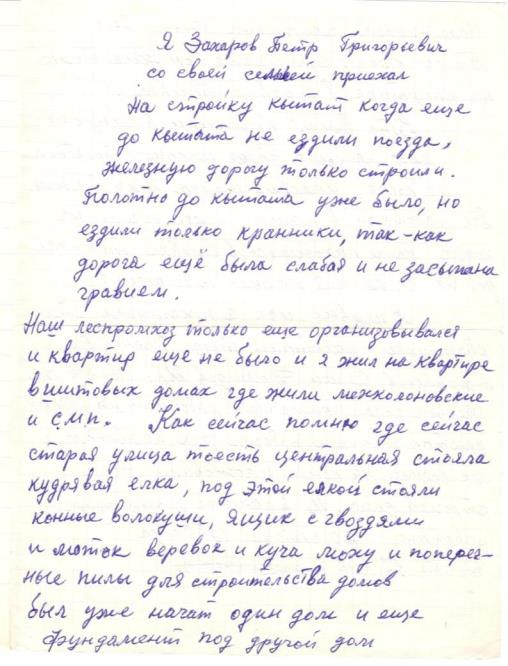 Я Захаров Петр Григорьевич
со своей семьей приехал
на стройку кытат когда еще
до кытата не ездили поезда,
железную дорогу только строили.
Полотно до кытата уже было, но
ездили только кранники, так-как
дорога ещё была слабая и не засыпана
гравием.
Наш леспромхоз только еще организовывался
и квартир еще не было и я жил на квартире
в щитовых домах где жили мехколоновские
и СМП. Как сейчас помню где сейчас
старая улица тоесть центральная стояла
кудрявая елка, под этой елкой стояли
конные волокуши, ящик с гвоздями
и моток веревок и куча моху и попереч-
ные пилы для строительства домов
был уже начат один дом и еще
фундамент под другой дом